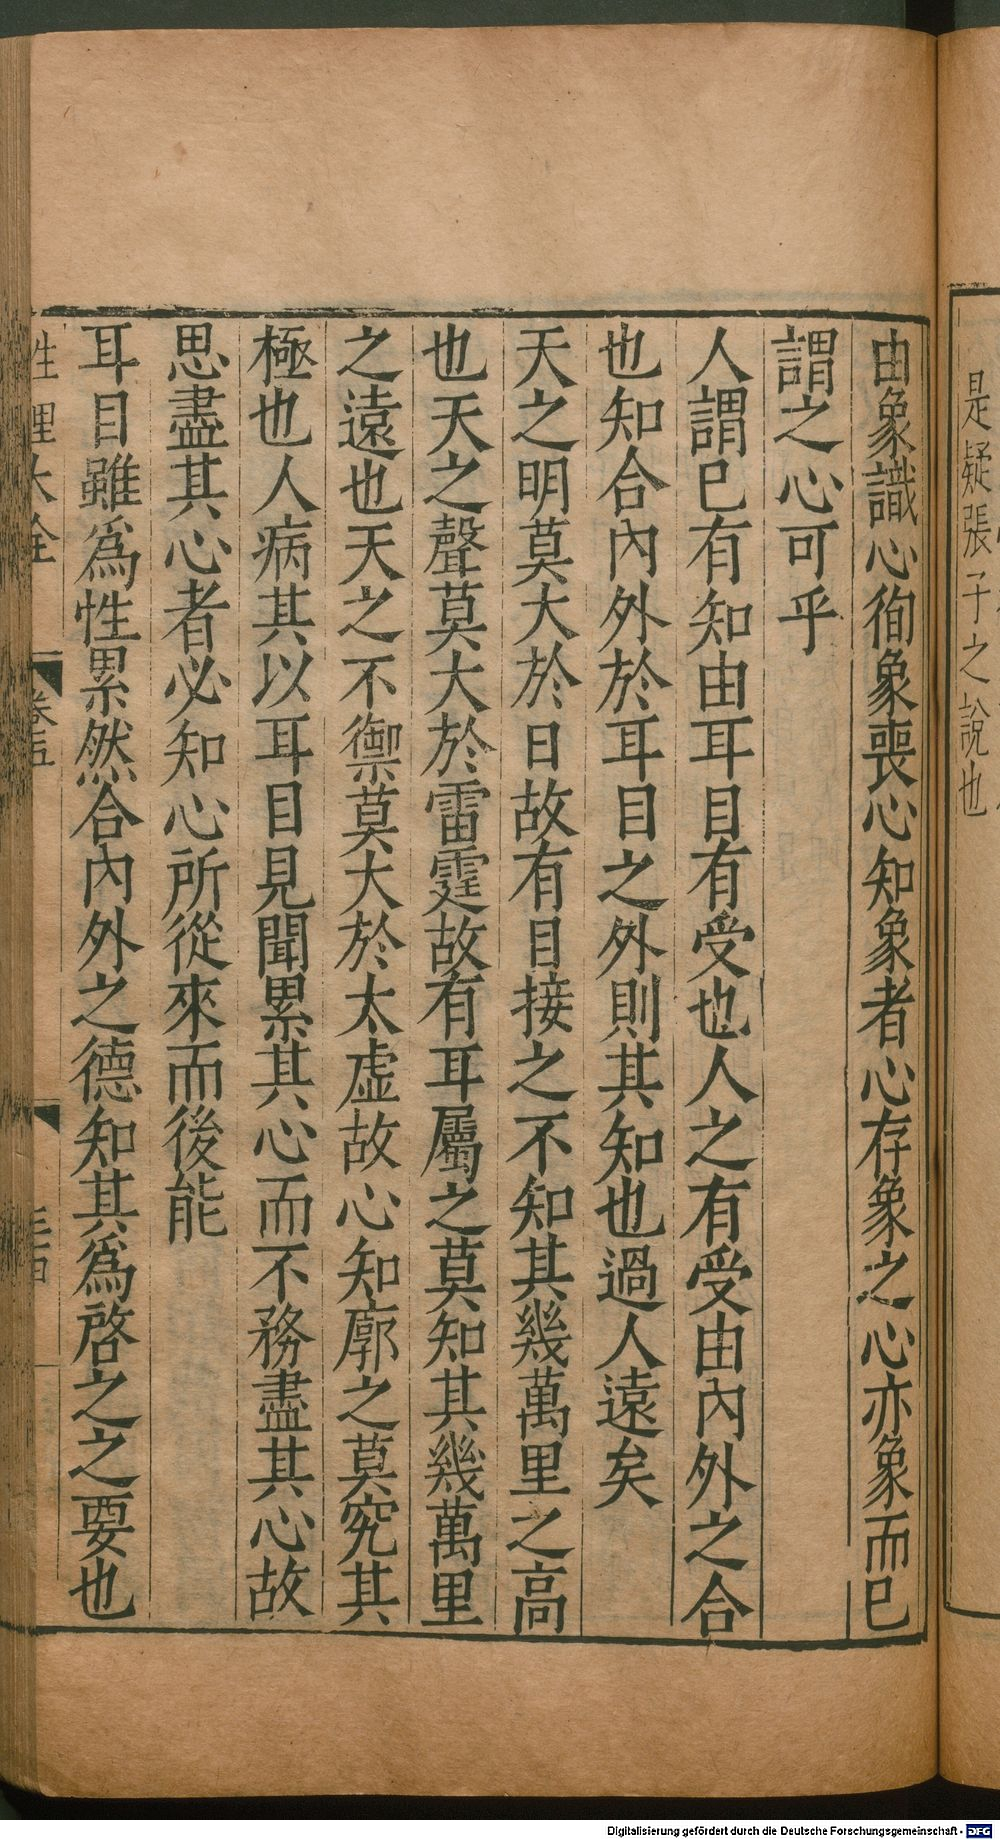 是疑張子之說也
由象識心徇象喪心知象者心存象之心亦象而已
謂之心可乎
人謂已有知由耳目有受也人之有受由內外之合
也知合內外於耳目之外則其知也過人遠矣
天之明莫大於日故有目接之不知其幾萬里之高
也天之聲莫大於雷霆故有耳屬之莫知其幾萬里
之遠也天之不禦莫大於太虛故心知廓之莫究其
極也人病其以耳目見聞累其心而不務盡其心故
思盡其心者必知心所從來而後能
耳目雖爲性累然合內外之德知其爲啓之之要也
性理大全
卷五
Digitalisierung gefördert durch die Deutsche Forschungsgemeinschaft - DFG